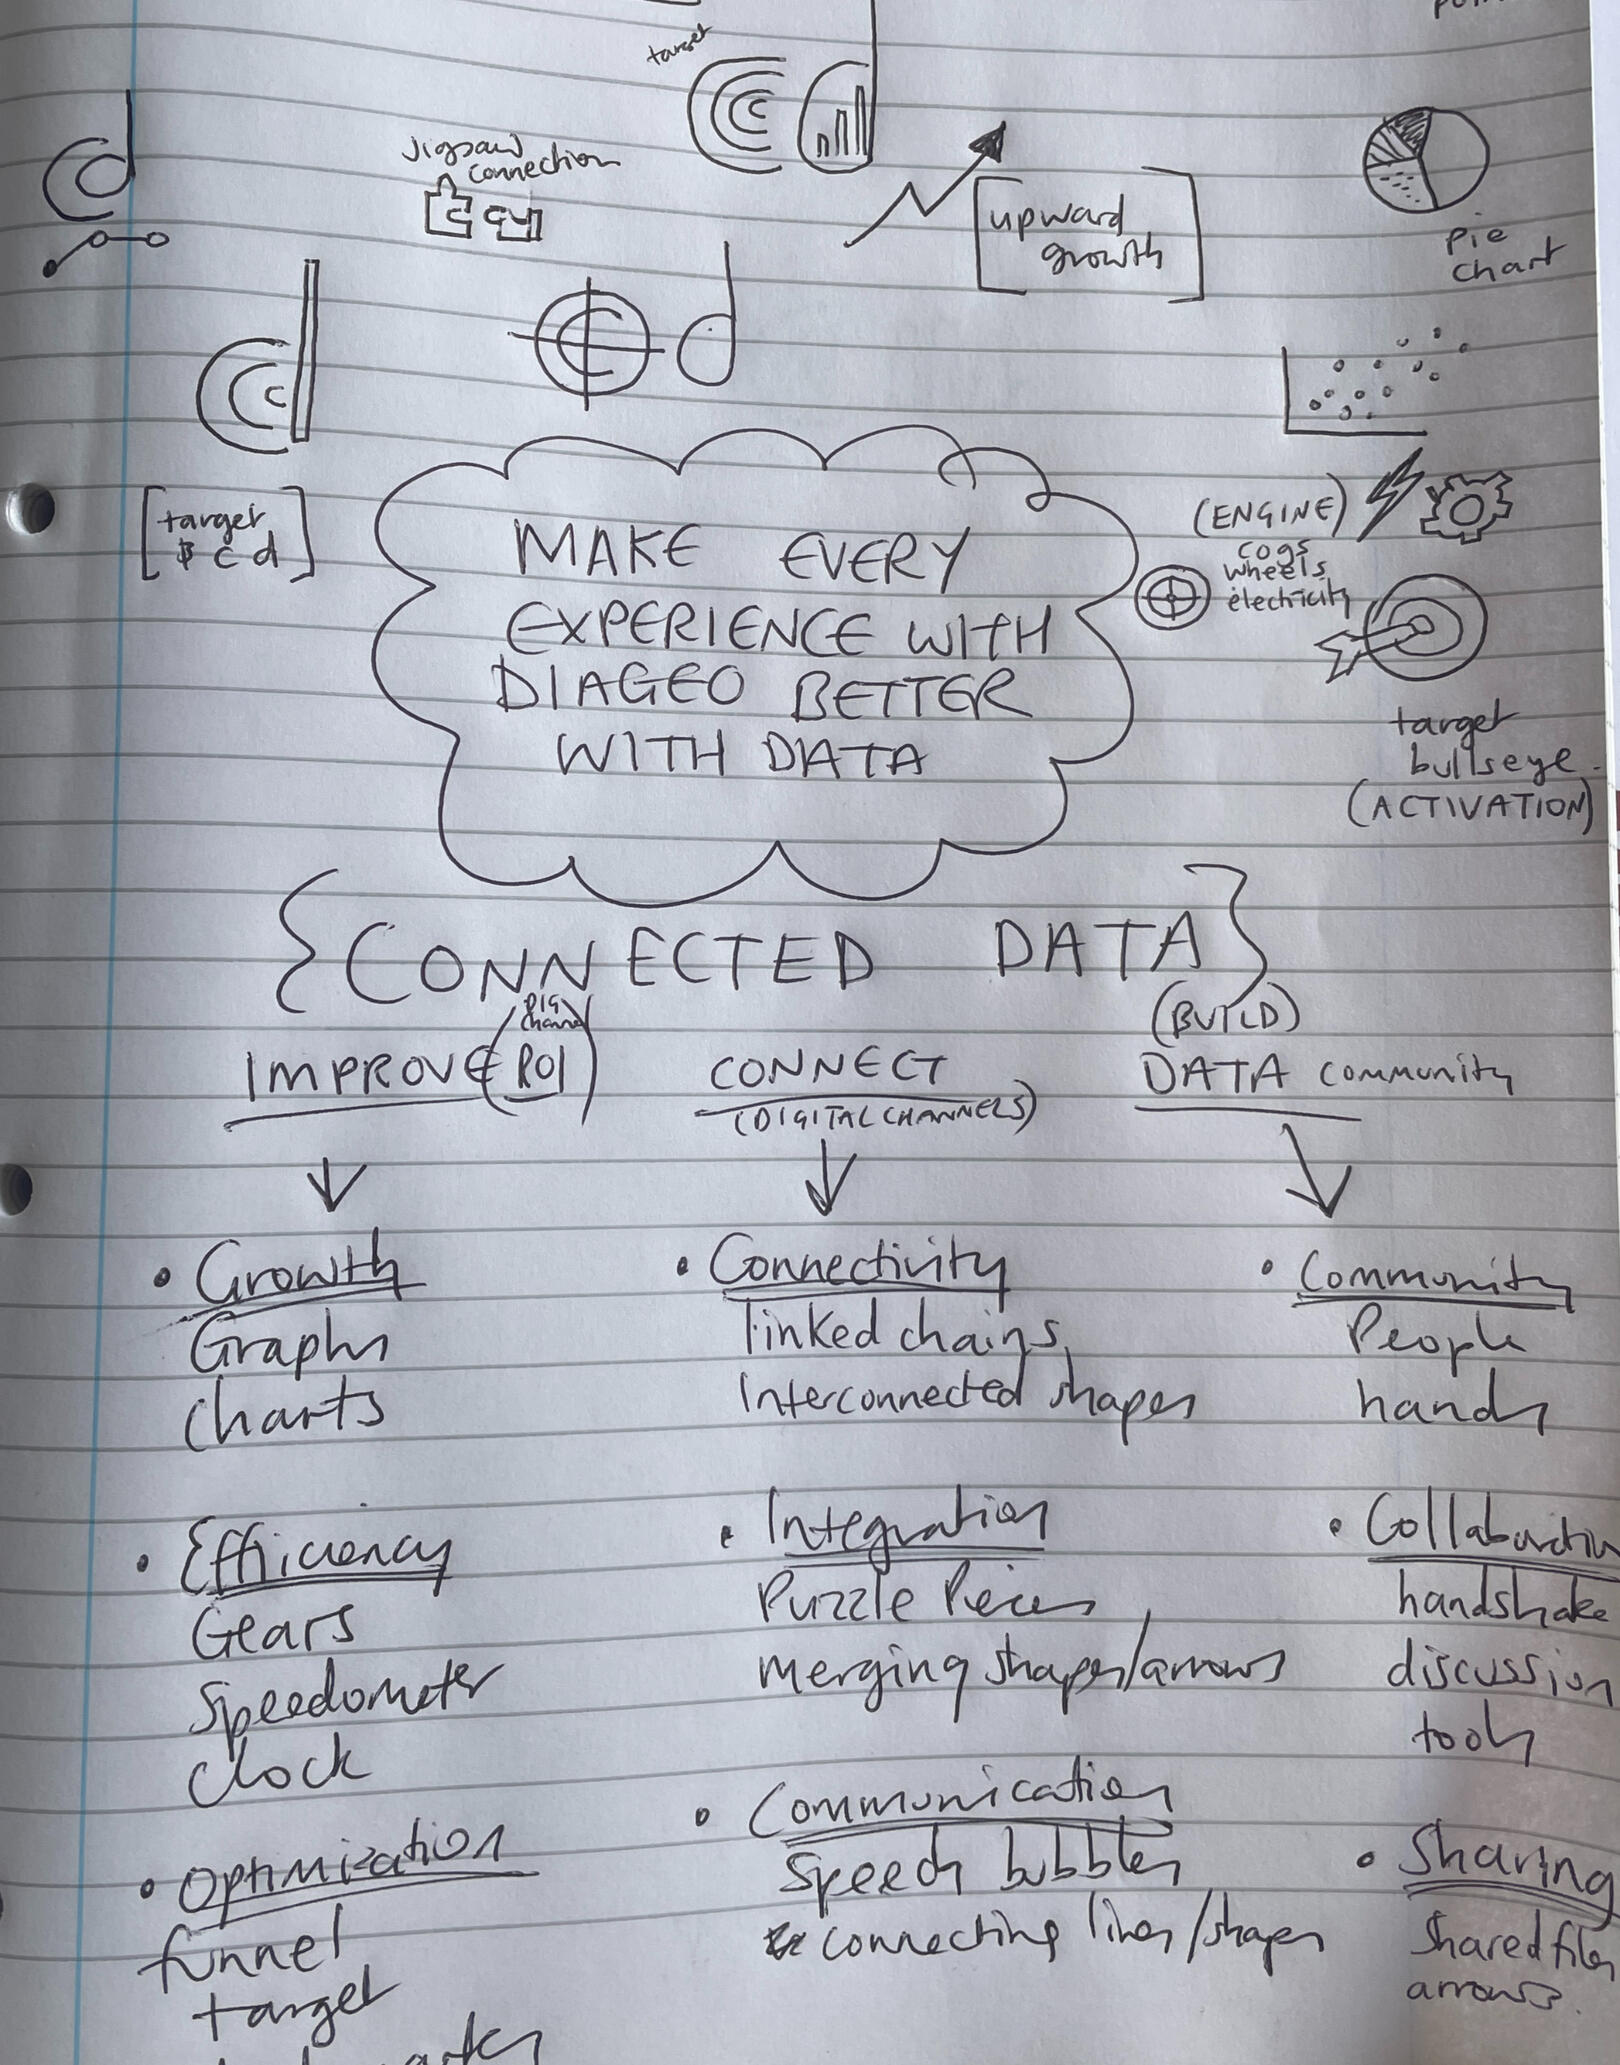 target
Jigsaw
connection
upward
growth
pie
chart
target
c d
(ENGINE)
cogs
wheels
electricity
MAKE EVERY
EXPERIENCE WITH
DIAGEO BETTER
WITH DATA
target
bullseye
(ACTIVATION)
{CONNECTED DATA}
DIG
channel
IMPROVE (ROI)
CONNECT
(DIGITAL CHANNELS)
(BUILD)
DATA community
• Growth
Graphs
charts
• Efficiency
Gears
Speedometer
clock
• Optimization
funnel
target
• Connectivity
linked chains,
Interconnected shapes
• Integration
Puzzle Pieces
merging shapes/arrows
• Communication
Speech bubbles
connecting lines/shapes
• Community
People
hands
• Collaboration
handshake
discussion
tools
• Sharing
Shared files
arrows.